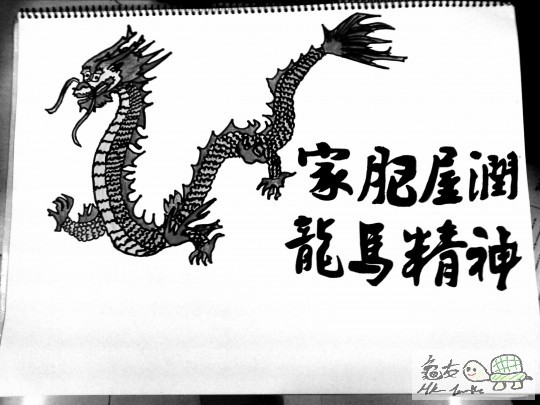 家肥屋潤
龍馬精神
龜友